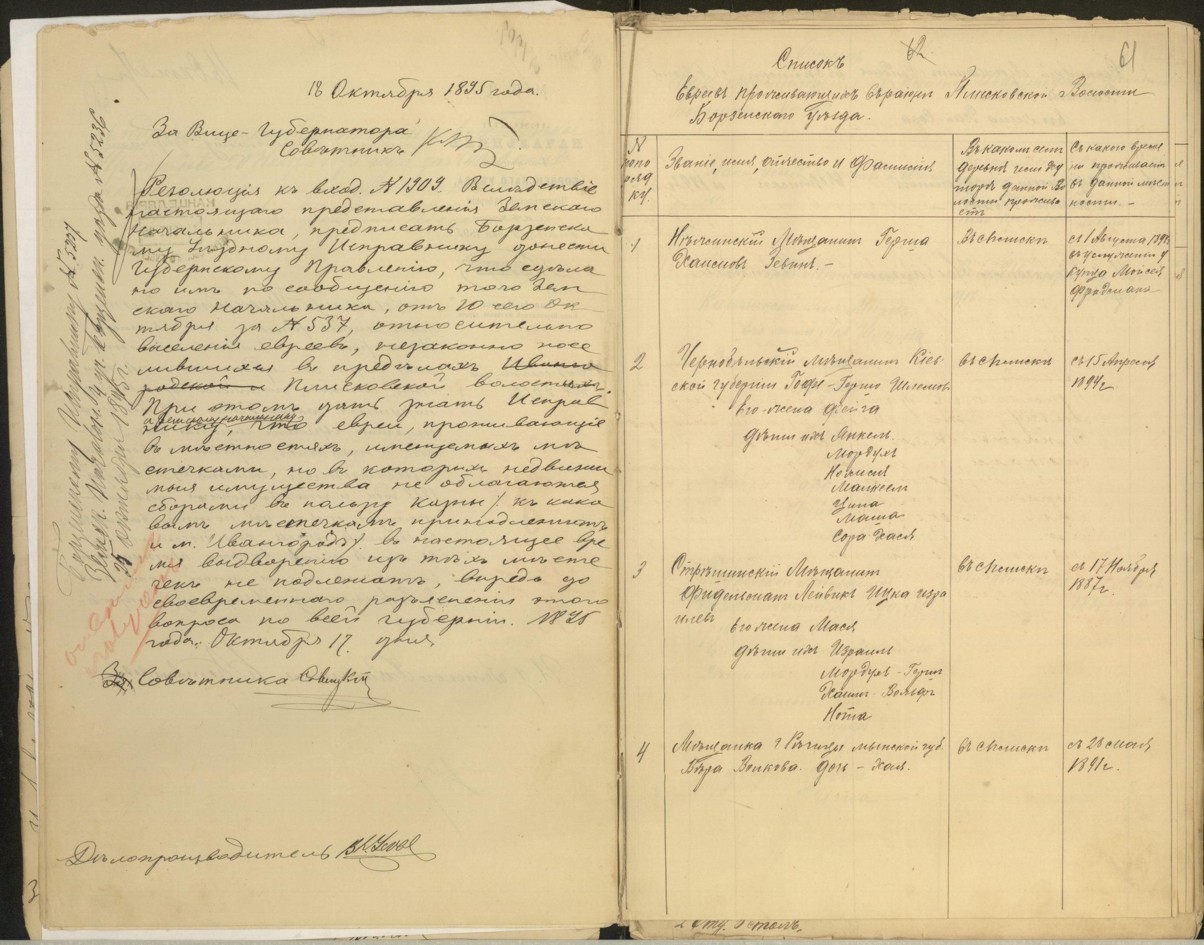 18 Октября 1895 года.
За Вице-Губернатора
Совѣтникъ
Резолюція къ вход. N 1909. Вслѣдствіе
настоящаго представленія Земскаго
Начальника, предписать Борзенско
му Уѣздному Исправнику донести
Губернскому Правленію, что сдѣла
но имъ по сообщенію того Зем
скаго Начальника, отъ 10 сего Ок
тября за N 537, относительно
выселенія евреевъ, незаконно посе
лившихся въ предѣлахъ Ивано
родской и Плисковской волостяхъ.
При этомъ дать знать Исправ
нику, что евреи, проживающіе
въ мѣстностяхъ, именуемыхъ мѣ
стечками, но въ которыхъ недвижи
мыя имущества не облагаются
сборами въ пользу казны / къ како
вымъ мѣстечкамъ принадлежитъ
и м. Ивангородъ / въ настоящее вре
мя выдворенію изъ тѣхъ мѣсте
чекъ не подлежатъ, впредь до
своевременнаго разъясненія этого
вопроса по всей губерніи. 1895
года. Октября 17 дня
За Совѣтника Савицкій
Дѣлопроизводитель
Борзенскому Исправнику N 5237
Земск. N 5236
25 Октября 1895 г.
62
61
Списокъ
Евреевъ проживающихъ въ раіонѣ Плисковской Волости
Борзенскаго Уѣзда.
N по поряд ку.
Званіе, имя, отчество и Фамилія
Въ какомъ сел деревнѣ или Ху торѣ данной Во лости прожива етъ
Съ какого време ни проживаетъ въ данной мѣст ности. -
1
Нѣжинскій Мѣщанинъ Герша
Хаимовъ Левинъ. -
Въ с Плискахъ
съ 1 Августа 1894
въ услуженіи у
купца Мойсея
Фрадкина
2
Чернобыльскій Мѣщанинъ Кіев
ской губерніи Гершъ Шлемовъ
его жена Фейга
дѣти ихъ Янкель
Мордухъ
Ципа
Маша
Сора Хася
въ с Плискахъ
съ 15 Апреля
1894 г
3
Стрѣшинскій Мѣщанинъ
Фридельманъ Лейвикъ Ицка Изра
илевъ
его жена Мася
дѣти ихъ Израиль
Мордухъ - Гершъ
Хаимъ - Вольфъ
Нота
въ с Плискахъ
съ 17 Ноября
1887 г.
4
Мѣщанка г Рѣчицы Минской губ.
Волкова. дочь - Хая.
въ с Плискахъ
съ 25 мая
1891 г.